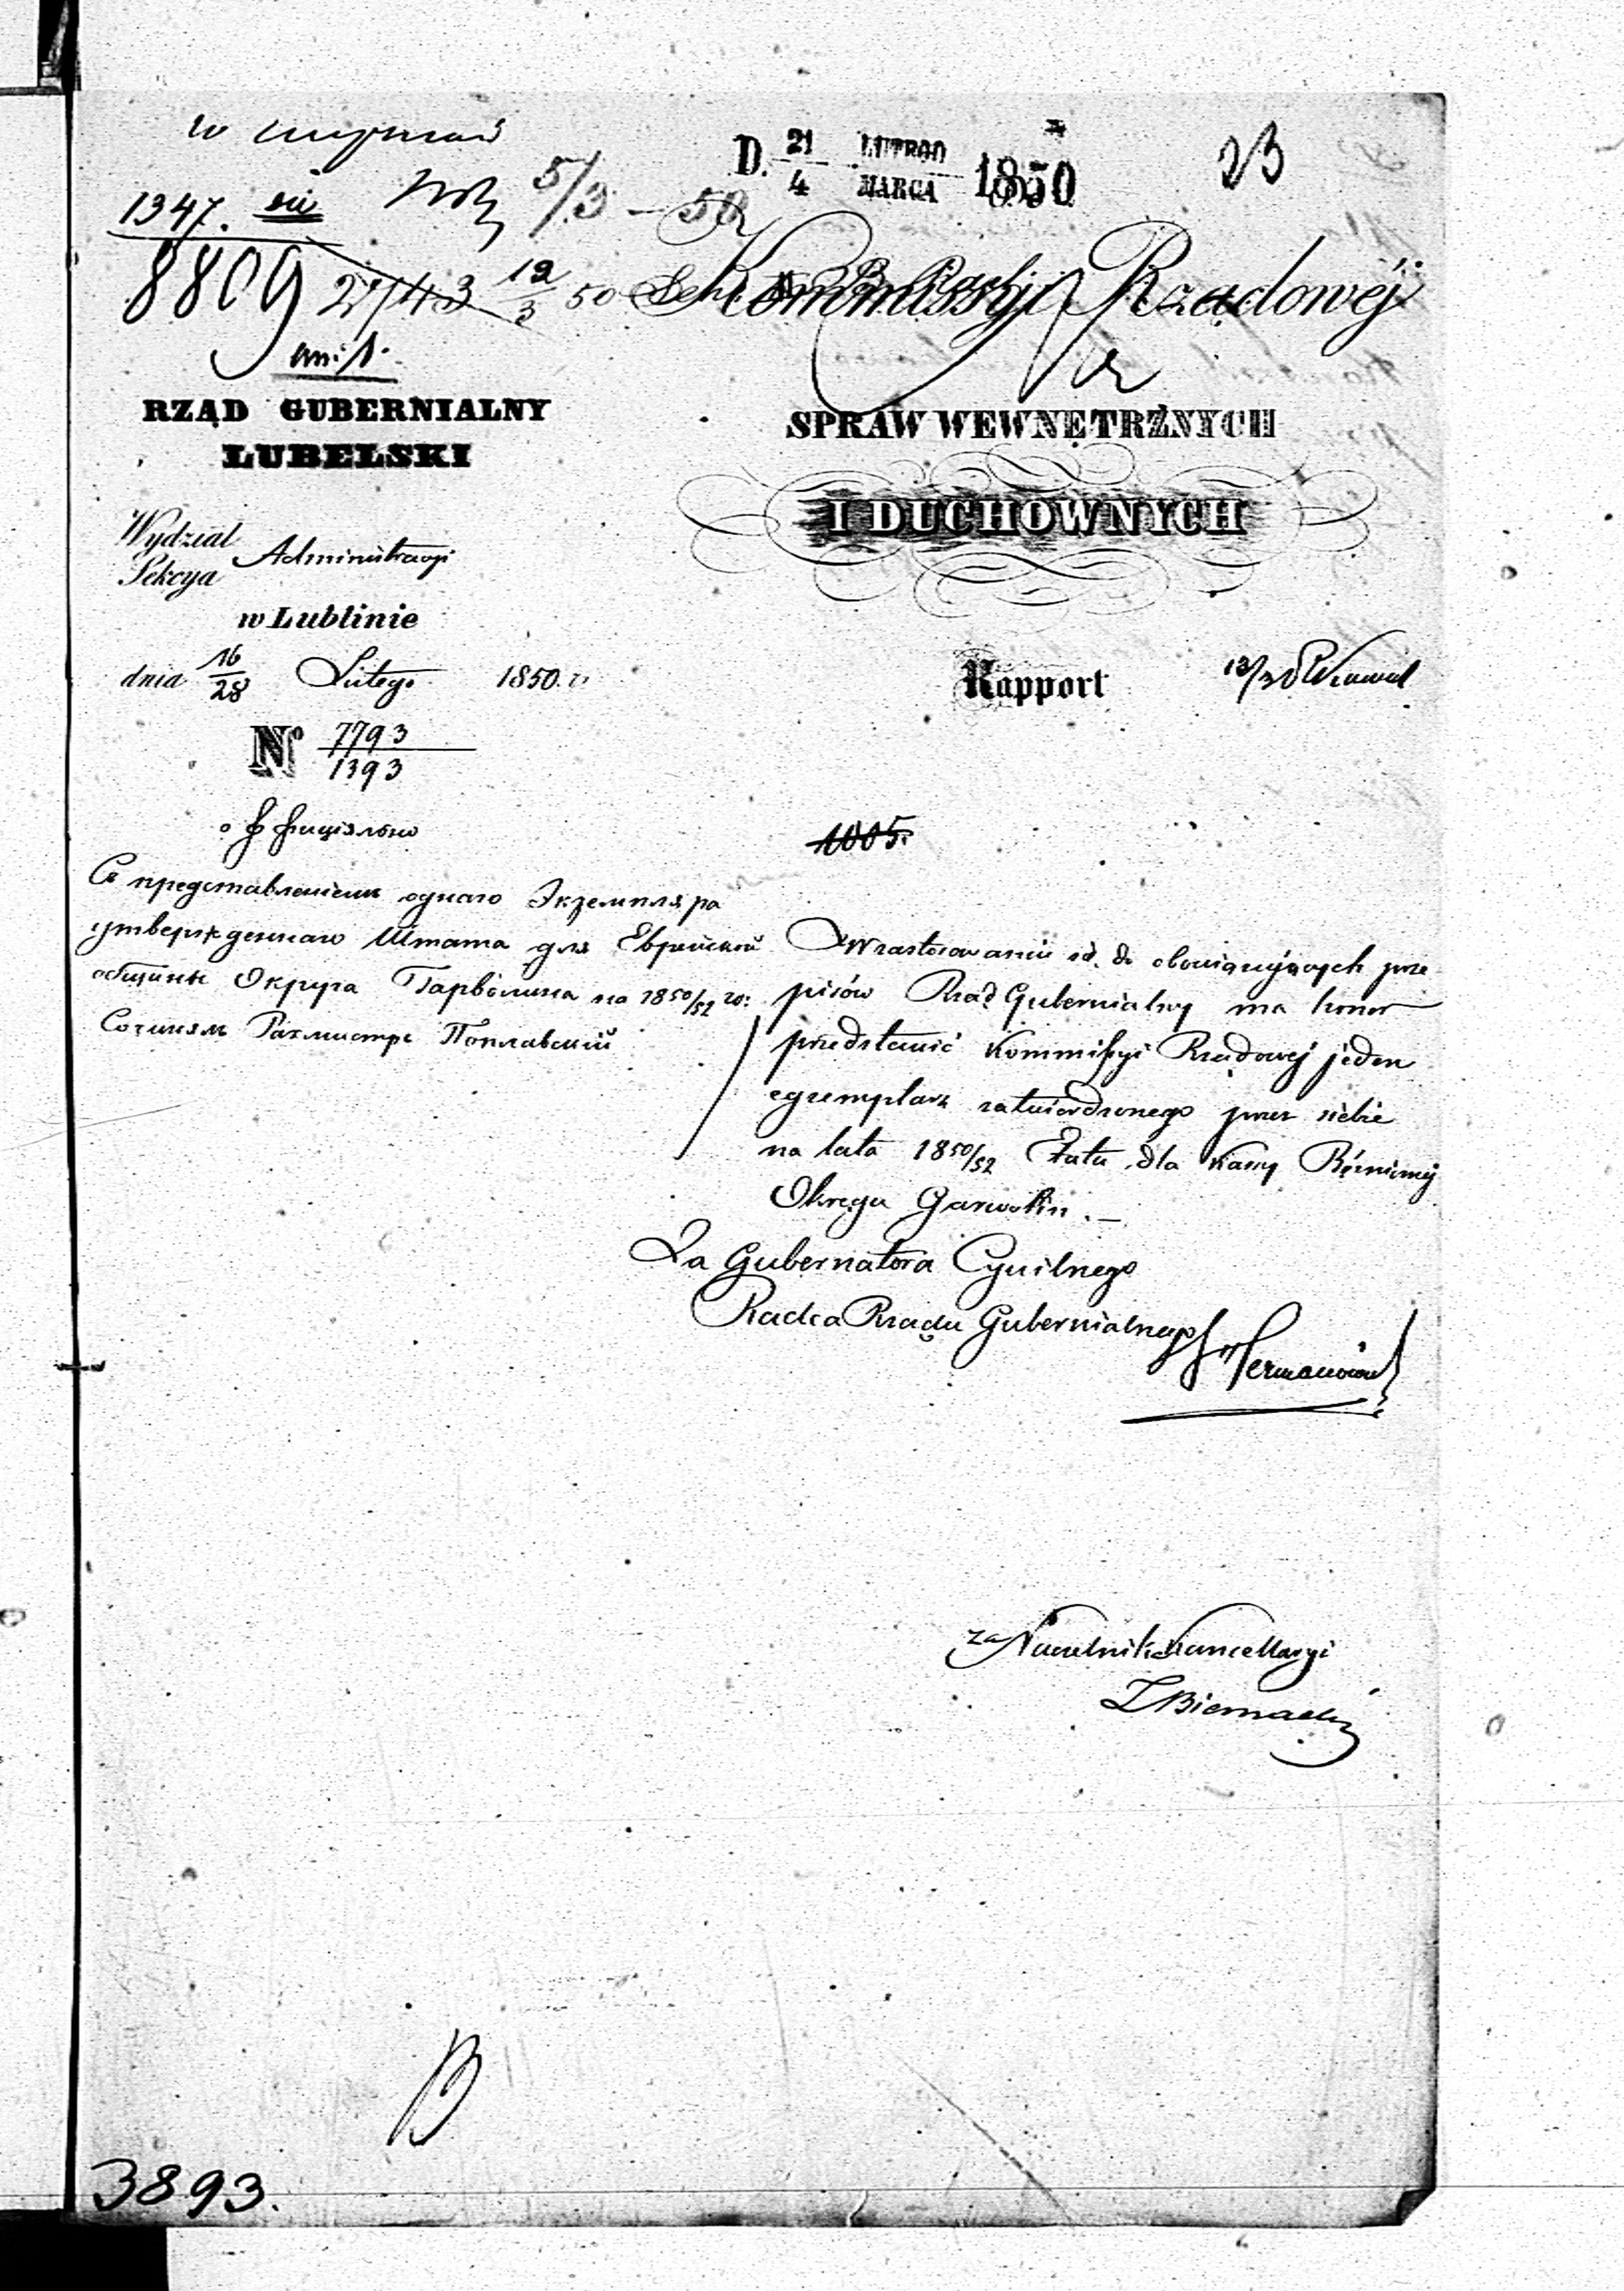 D. 21/4 LUTEGO/MARCA 1850
23
1347.
5/3 — 50
8809 2743 12/3 50
Kommissyi Rządowéj
RZĄD GUBERNIALNY
LUBELSKI
SPRAW WEWNĘTRZNYCH
I DUCHOWNYCH
Wydział
Sekcya
Administracyi
w Lublinie
dnia 16/28 Lutego 1850. r.
Rapport
N° 7793/1393
1005.
Съ представленіемъ одного Экземпляра
утвержденнаго Штата для Еврейской
общины Округа Гарволина на 1850/52 го:
Сочинялъ Рахмистръ Поплавскій
W zastosowaniu się do obowiązujących prze-
pisów Rząd Gubernialny ma honor
przedstawić Kommissyi Rządowej jeden
egzemplarz zatwierdzonego przez siebie
na lata 1850/52 Etatu dla Kassy Bóżniczej
Okręgu Garwolin. —
Za Gubernatora Cywilnego
Radca Rządu Gubernialnego
za Naczelnika Kancellaryi
Biernacki
3893.